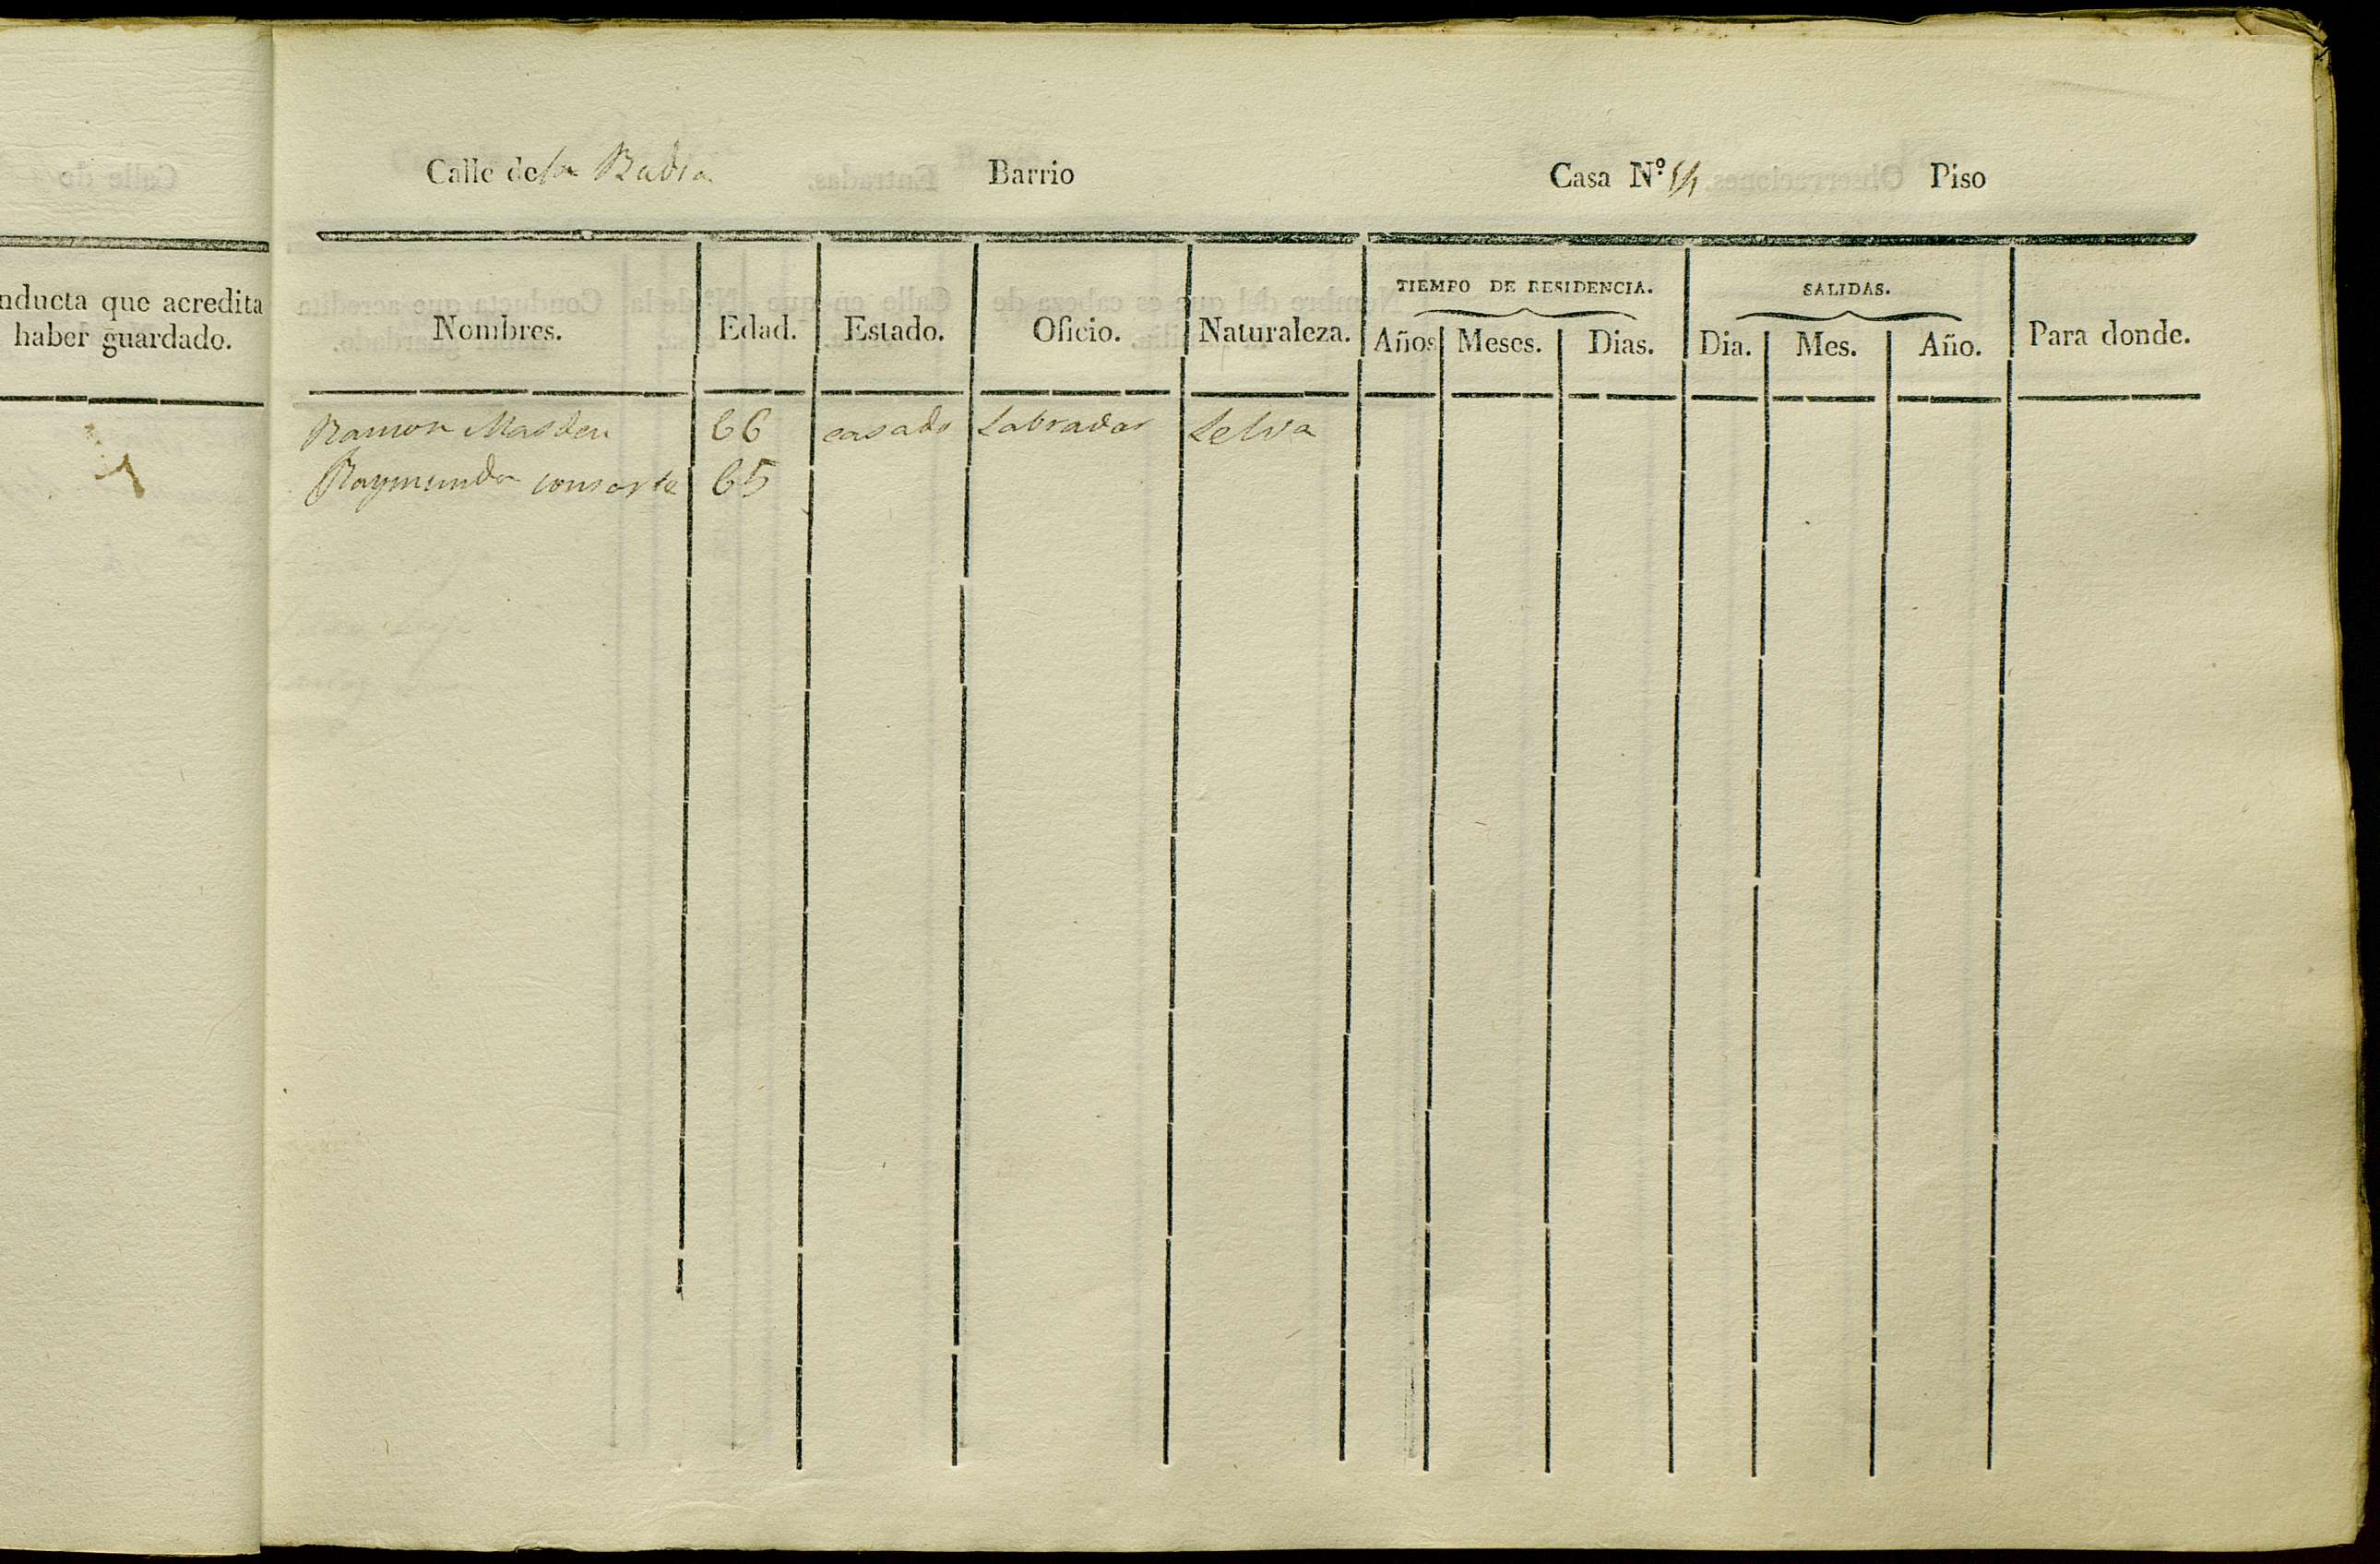 nducta que acredita
haber guardado.
Calle de la Badia Barrio Casa N.º Piso
Nombres. Edad. Estado. Oficio. Naturaleza. TIEMPO DE RESIDENCIA. SALIDAS. Para donde.
Años Meses. Dias. Dia. Mes. Año.
Ramon Masdeu 66 casado Labrador Selva
Raymunda consorte 65